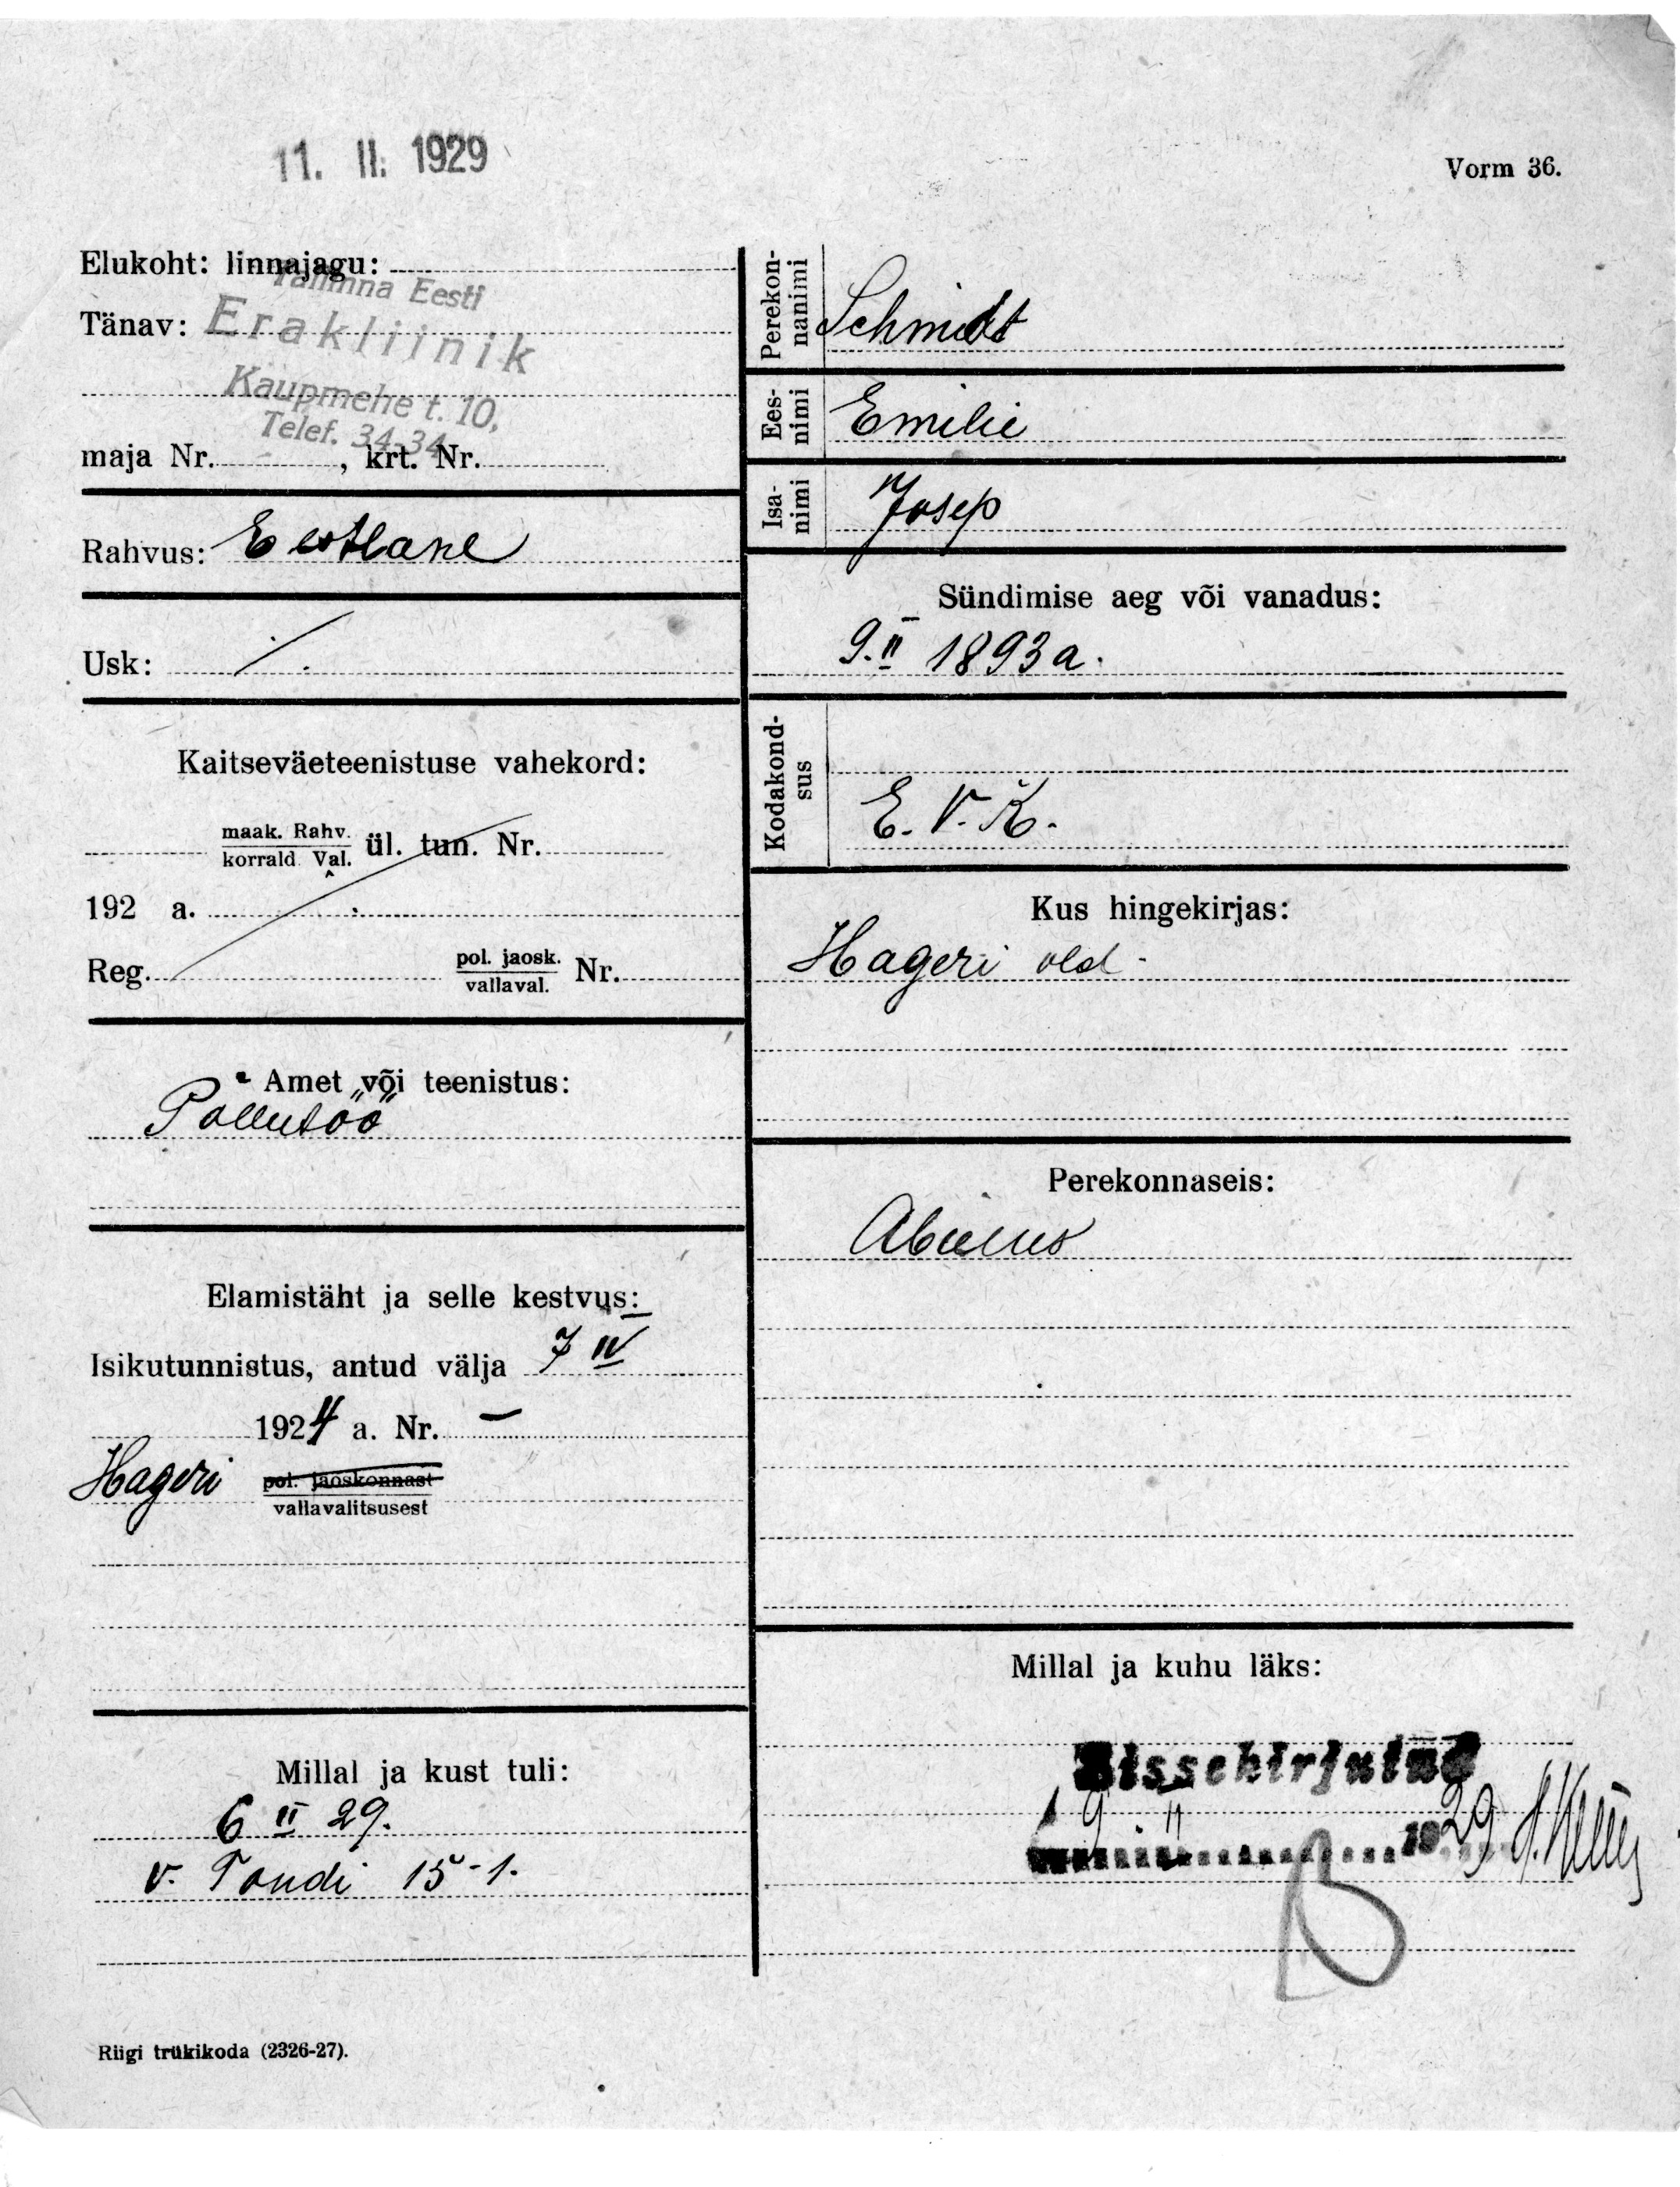 11. II. 1929
Vorm 36.
Elukoht: linnajagu:
Tallinna Eesti
Tänav:
Erakliinik
Kaupmehe t. 10,
Telef. 34-34
maja Nr. , krt. Nr.
Rahvus: Eestlane
Usk:
Kaitseväeteenistuse vahekord:
maak. Rahv.
korrald Val. ül. tun. Nr.
192 a.
Reg. pol. jaosk.
vallaval. Nr.
Amet või teenistus:
Põllutöö
Elamistäht ja selle kestvus:
Isikutunnistus, antud välja 7 IV
1924 a. Nr. —
Hageri pol. jaoskonnast
vallavalitsusest
Millal ja kust tuli:
6 II 29.
v. Tondi 15-1.
Riigi trükikoda (2326-27).
Perekon-
nanimi
Schmidt
Ees-
nimi
Emilie
Isa-
nimi
Josep
Sündimise aeg või vanadus:
9. II 1893 a.
Kodakond-
sus
E. V. K.
Kus hingekirjas:
Hageri vld.
Perekonnaseis:
Abielus
Millal ja kuhu läks:
Sissekirjutud
9. II 1929